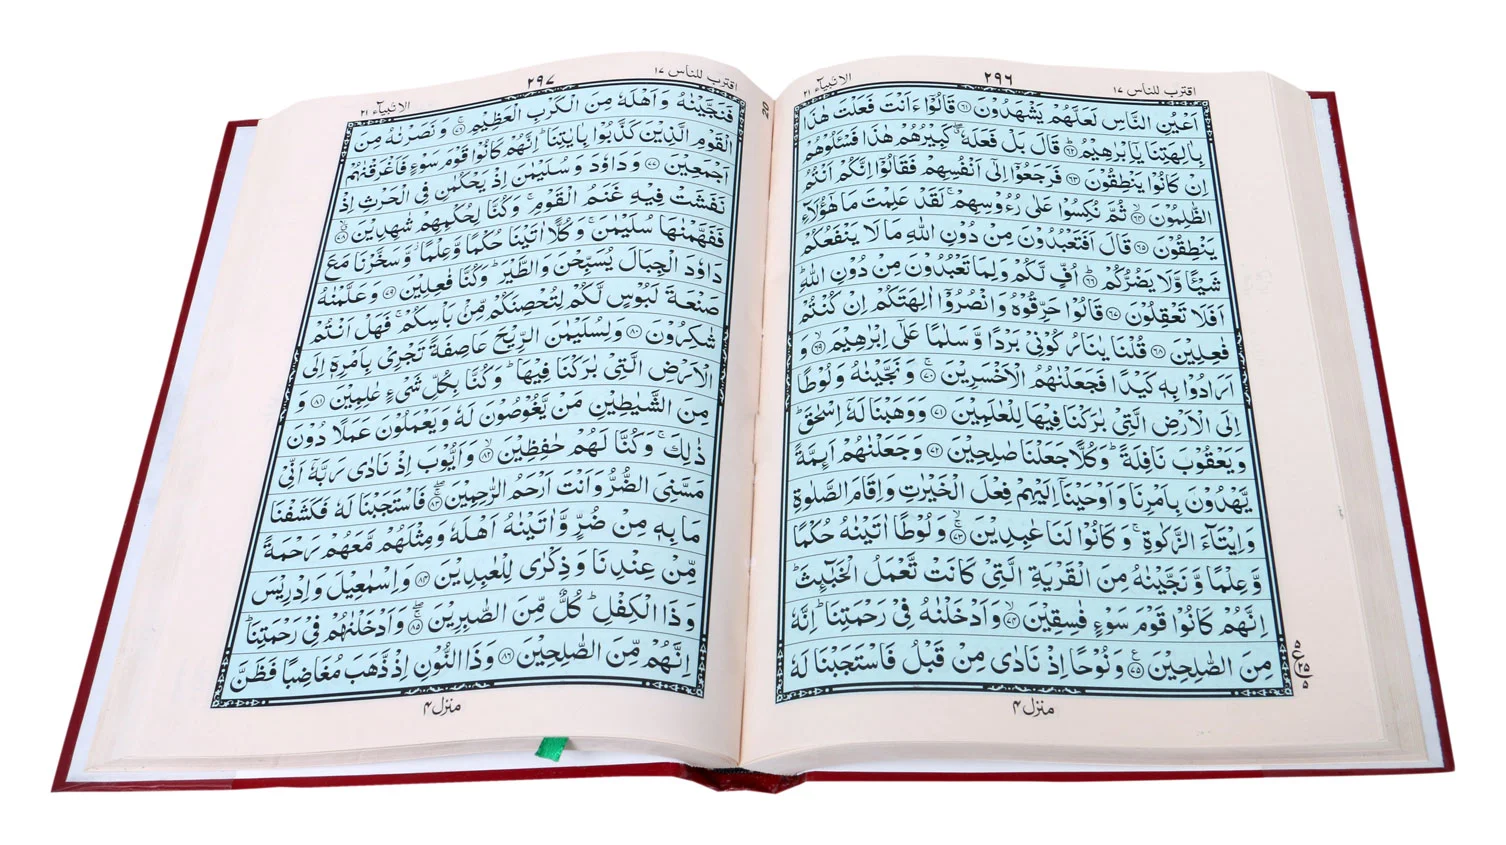 اقترب للناس ١٧
٢٩٦
الانبیآء ٢١
اَعْيُنِ النَّاسِ لَعَلَّهُمْ يَشْهَدُوْنَ ﴿٦١﴾ قَالُوْٓا ءَاَنْتَ فَعَلْتَ هٰذَا
بِاٰلِهَتِنَا يٰٓاِبْرٰهِيْمُ ؕ﴿٦٢﴾ قَالَ بَلْ فَعَلَهٗ ۖۗ كَبِيْرُهُمْ هٰذَا فَسْـَٔلُوْهُمْ
اِنْ كَانُوْا يَنْطِقُوْنَ ﴿٦٣﴾ فَرَجَعُوْٓا اِلٰٓى اَنْفُسِهِمْ فَقَالُوْٓا اِنَّكُمْ اَنْتُمُ
الظّٰلِمُوْنَ ۙ﴿٦٤﴾ ثُمَّ نُكِسُوْا عَلٰى رُءُوْسِهِمْ ۚ لَقَدْ عَلِمْتَ مَا هٰٓؤُلَآءِ
يَنْطِقُوْنَ ﴿٦٥﴾ قَالَ اَفَتَعْبُدُوْنَ مِنْ دُوْنِ اللّٰهِ مَا لَا يَنْفَعُكُمْ
شَيْـًٔا وَّلَا يَضُرُّكُمْ ؕ﴿٦٦﴾ اُفٍّ لَّكُمْ وَلِمَا تَعْبُدُوْنَ مِنْ دُوْنِ اللّٰهِ ؕ
اَفَلَا تَعْقِلُوْنَ ﴿٦٧﴾ قَالُوْا حَرِّقُوْهُ وَانْصُرُوْٓا اٰلِهَتَكُمْ اِنْ كُنْتُمْ
فٰعِلِيْنَ ﴿٦٨﴾ قُلْنَا يٰنَارُ كُوْنِيْ بَرْدًا وَّ سَلٰمًا عَلٰٓى اِبْرٰهِيْمَ ۙ﴿٦٩﴾ وَ
اَرَادُوْا بِهٖ كَيْدًا فَجَعَلْنٰهُمُ الْاَخْسَرِيْنَ ۚ﴿٧٠﴾ وَ نَجَّيْنٰهُ وَ لُوْطًا
اِلَى الْاَرْضِ الَّتِيْ بٰرَكْنَا فِيْهَا لِلْعٰلَمِيْنَ ﴿٧١﴾ وَوَهَبْنَا لَهٗٓ اِسْحٰقَ ؕ
وَ يَعْقُوْبَ نَافِلَةً ؕ وَكُلًّا جَعَلْنَا صٰلِحِيْنَ ﴿٧٢﴾ وَجَعَلْنٰهُمْ اَىِٕمَّةً
يَّهْدُوْنَ بِاَمْرِنَا وَ اَوْحَيْنَآ اِلَيْهِمْ فِعْلَ الْخَيْرٰتِ وَاِقَامَ الصَّلٰوةِ
وَاِيْتَآءَ الزَّكٰوةِ ۚ وَ كَانُوْا لَنَا عٰبِدِيْنَ ۚۙ﴿٧٣﴾ وَ لُوْطًا اٰتَيْنٰهُ حُكْمًا
وَّ عِلْمًا وَّ نَجَّيْنٰهُ مِنَ الْقَرْيَةِ الَّتِيْ كَانَتْ تَّعْمَلُ الْخَبٰٓىِٕثَ ؕ
اِنَّهُمْ كَانُوْا قَوْمَ سَوْءٍ فٰسِقِيْنَ ۙ﴿٧٤﴾ وَ اَدْخَلْنٰهُ فِيْ رَحْمَتِنَا ؕ اِنَّهٗ
مِنَ الصّٰلِحِيْنَ ﴿٧٥﴾ وَنُوْحًا اِذْ نَادٰى مِنْ قَبْلُ فَاسْتَجَبْنَا لَهٗ
منزل ٤
اقترب للناس ١٧
٢٩٧
الانبیآء ٢١
20
فَنَجَّيْنٰهُ وَ اَهْلَهٗ مِنَ الْكَرْبِ الْعَظِيْمِ ۚ﴿٧٦﴾ وَ نَصَرْنٰهُ مِنَ
الْقَوْمِ الَّذِيْنَ كَذَّبُوْا بِاٰيٰتِنَا ؕ اِنَّهُمْ كَانُوْا قَوْمَ سَوْءٍ فَاَغْرَقْنٰهُمْ
اَجْمَعِيْنَ ﴿٧٧﴾ وَ دَاوٗدَ وَ سُلَيْمٰنَ اِذْ يَحْكُمٰنِ فِي الْحَرْثِ اِذْ
نَفَشَتْ فِيْهِ غَنَمُ الْقَوْمِ ۚ وَ كُنَّا لِحُكْمِهِمْ شٰهِدِيْنَ ۗۙ﴿٧٨﴾
فَفَهَّمْنٰهَا سُلَيْمٰنَ ۚ وَ كُلًّا اٰتَيْنَا حُكْمًا وَّعِلْمًا ؗ وَّ سَخَّرْنَا مَعَ
دَاوٗدَ الْجِبَالَ يُسَبِّحْنَ وَالطَّيْرَ ؕ وَ كُنَّا فٰعِلِيْنَ ﴿٧٩﴾ وَ عَلَّمْنٰهُ
صَنْعَةَ لَبُوْسٍ لَّكُمْ لِتُحْصِنَكُمْ مِّنْۢ بَاْسِكُمْ ۚ فَهَلْ اَنْتُمْ
شٰكِرُوْنَ ﴿٨٠﴾ وَ لِسُلَيْمٰنَ الرِّيْحَ عَاصِفَةً تَجْرِيْ بِاَمْرِهٖٓ اِلَى
الْاَرْضِ الَّتِيْ بٰرَكْنَا فِيْهَا ؕ وَ كُنَّا بِكُلِّ شَيْءٍ عٰلِمِيْنَ ﴿٨١﴾ وَ
مِنَ الشَّيٰطِيْنِ مَنْ يَّغُوْصُوْنَ لَهٗ وَ يَعْمَلُوْنَ عَمَلًا دُوْنَ
ذٰلِكَ ۚ وَ كُنَّا لَهُمْ حٰفِظِيْنَ ۙ﴿٨٢﴾ وَ اَيُّوْبَ اِذْ نَادٰى رَبَّهٗٓ اَنِّيْ
مَسَّنِيَ الضُّرُّ وَ اَنْتَ اَرْحَمُ الرّٰحِمِيْنَ ۚۖ﴿٨٣﴾ فَاسْتَجَبْنَا لَهٗ فَكَشَفْنَا
مَا بِهٖ مِنْ ضُرٍّ وَّ اٰتَيْنٰهُ اَهْلَهٗ وَ مِثْلَهُمْ مَّعَهُمْ رَحْمَةً
مِّنْ عِنْدِنَا وَ ذِكْرٰى لِلْعٰبِدِيْنَ ﴿٨٤﴾ وَ اِسْمٰعِيْلَ وَ اِدْرِيْسَ
وَ ذَا الْكِفْلِ ؕ كُلٌّ مِّنَ الصّٰبِرِيْنَ ۚۖ﴿٨٥﴾ وَ اَدْخَلْنٰهُمْ فِيْ رَحْمَتِنَا ؕ
اِنَّهُمْ مِّنَ الصّٰلِحِيْنَ ﴿٨٦﴾ وَ ذَا النُّوْنِ اِذْ ذَّهَبَ مُغَاضِبًا فَظَنَّ
منزل ٤